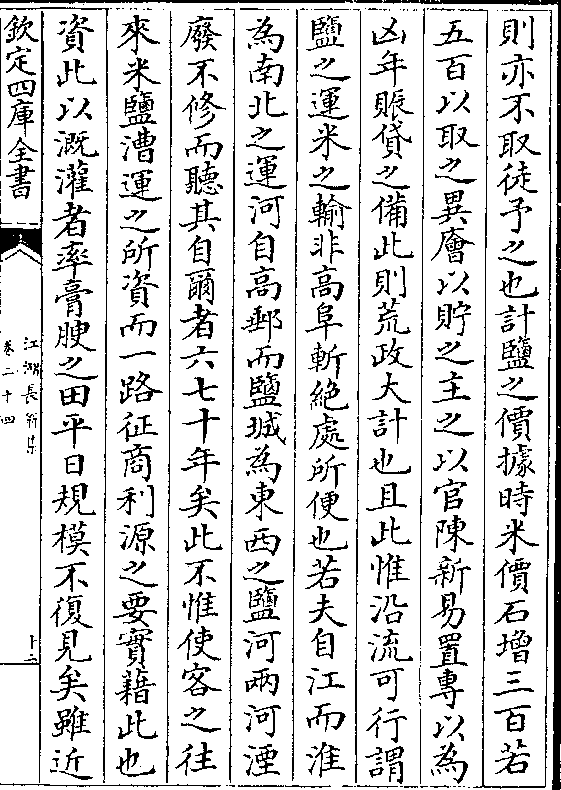 則亦不取徒予之也計鹽之價據時米價石增三百若
五百以取之異廥以貯之主之以官陳新易置專以為
凶年賑貸之備此則荒政大計也且此惟沿流可行謂
鹽之運米之輸非高阜斬絶處所便也若夫自江而淮
為南北之運河自高郵而鹽城為東西之鹽河兩河湮
廢不修而聽其自爾者六七十年矣此不惟使客之往
來米鹽漕運之所資而一路征商利源之要實藉此也
資此以溉灌者率膏腴之田平日規模不復見矣雖近
欽定四庫全書
江湖長翁集
卷二十四
十二